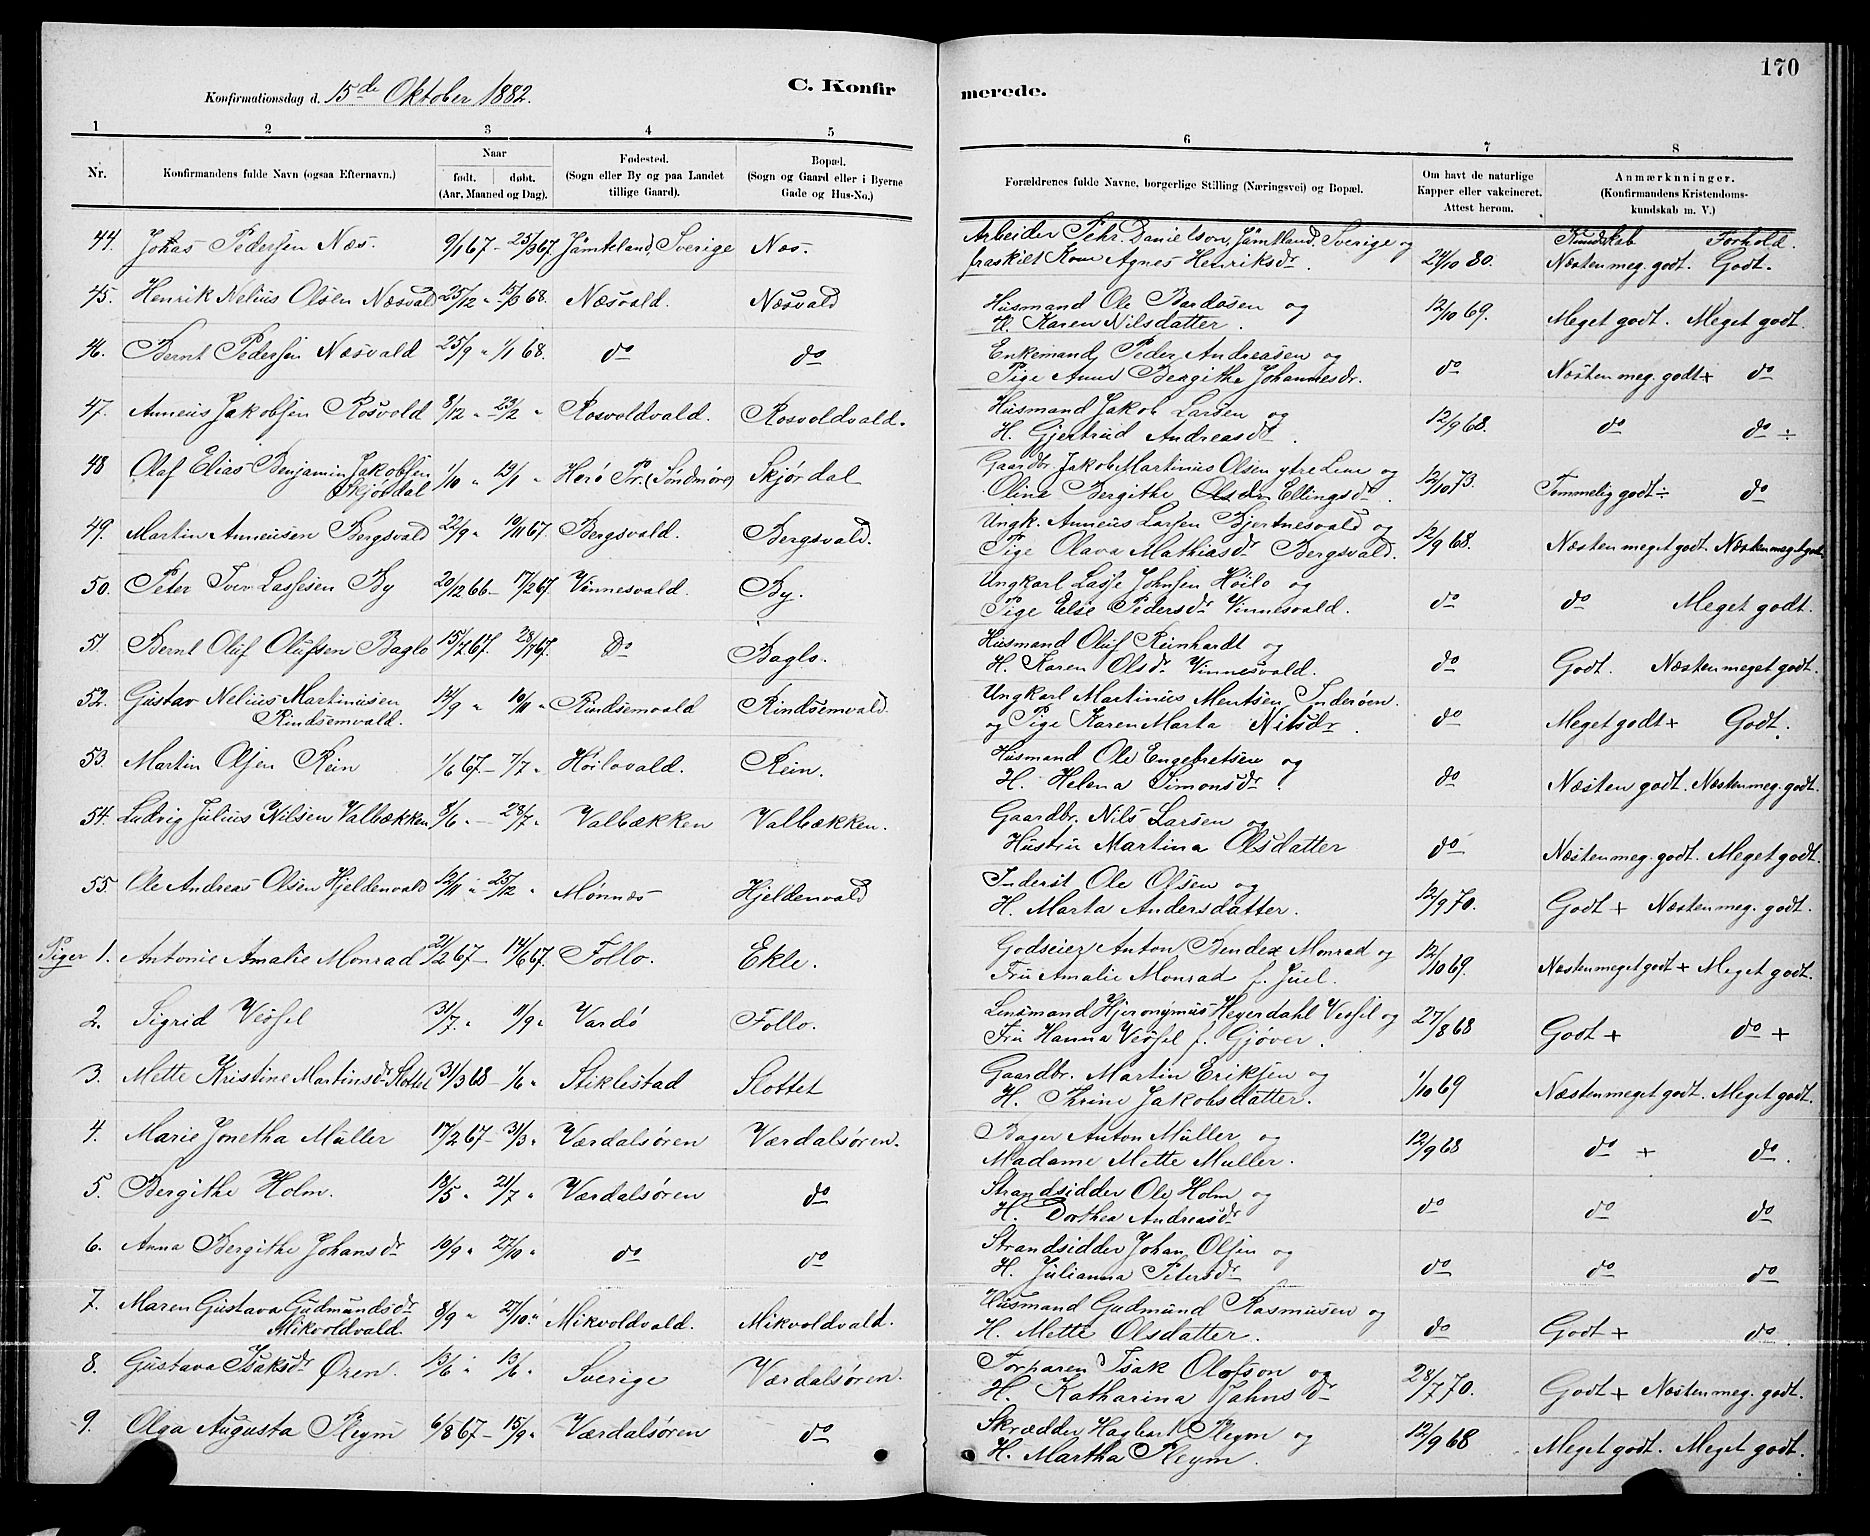 170
Konfirmationsdag d. 15de Oktober 1882.
C. Konfirmerede.
1 2 3 4 5 6 7 8
Nr.
Konfirmandens fulde Navn (ogsaa Efternavn.)
Naar
født. døbt.
(Aar, Maaned og Dag).
Fødested.
(Sogn eller By og paa Landet
tillige Gaard).
Bopæl.
(Sogn og Gaard eller i Byerne
Gade og Hus-No.)
Forældrenes fulde Navne, borgerlige Stilling (Næringsvei) og Bopæl.
Om havt de naturlige
Kopper eller vakcineret.
Attest herom.
Anmærkninger.
(Konfirmandens Kristendoms-
kundskab m. V.)
Kundskab Forhold.
44. Johas Pedersen Næs. 9/1 67 - 25/3 67. Jämteland, Sverige Næs. Arbeider Pehr Danielson, Jämtland, Sverige og
fraskilt Kone Agnes Henriksdr. 24/10 80. Næsten meg. godt. Godt.
45. Henrik Nelius Olsen Næsvald 25/12 " 15/3 68. Næsvald. Næsvald Husmand Ole Bardosen og
H. Karen Nilsdatter. 12/10 69. Meget godt. Meget godt.
46. Bernt Pedersen Næsvald 25/9 " 1/1 68. do do Enkemand Peder Andreasen og
Pige Anne Bergithe Johannesdr. do Næsten meg. godt + do
47. Anneus Jakobsen Rosvold 8/12 " 23/2 " Rosvoldvald. Rosvoldvald. Husmand Jakob Larsen og
H. Gjertrud Andreasdr. 12/9 68. do do ÷
48 Olaf Elias Benjamin Jakobsen
Skjørdal 1/10 " 19/1 " Herø Pr. (Søndmøre) Skjørdal Gaardbr. Jakob Martinus Olsen ytre Leine og
Oline Bergithe Ellingsdr. 12/10 73. Temmelig godt ÷ do
49. Martin Anneusen Bergsvald 22/9 " 10/11 67. Bergsvald. Bergsvald. Ungk. Anneus Larsen Bjertnesvald og
Pige Olava Mathiasdr Bergsvald. 12/9 68. Næsten meget godt. Næsten meget godt
50. Peter Iver Lassesen By 20/12 66 - 17/2 67. Vinnesvald. By. Ungkarl Lasse Johnsen Høilo og
Pige Else Pedersdr Vinnesvald. do do Meget godt.
51. Bernt Oluf Olufsen Baglo 15/7 67. 28/7 67. Do Baglo. Husmand Oluf Reinhardt og
H. Karen Olsdr. Vinnesvald. do Godt. Næsten meget godt.
52. Gustav Nelius Martinusen
Rindsemvald. 14/9 " 10/11 " Rindsemvald Rindsemvald. Ungkarl Martinus Mentsen Inderøen
og Pige Karen Marta Nilsdr. do Meget godt + Godt.
53. Martin Olsen Rein 1/6 67 - 7/7 " Høilovald. Rein. Husmand Ole Engebretsen og
H. Helena Simonsdr. do Næsten godt. Næsten meg. godt.
54. Ludvig Julius Nilsen Valbækken 8/6 - 28/7 " Valbækken Valbækken. Gaardbr. Nils Larsen og
Hustru Martina Olsdatter do Næsten meg. godt. Meget godt.
55. Ole Andreas Olsen Hjeldenvald 12/11 " 25/12 " Mønnes Hjeldenvald Inderst Ole Olsen og
H. Marta Andersdatter. 12/9 70. Godt + Næsten meg. godt.
Piger 1. Antonie Amalie Monrad 21/2 67 - 14/6 67. Follo. Ekle. Godseier Anton Bendex Monrad og
Fru Amalie Monrad f. Juel. 12/10 69. Næsten meget godt + Meget godt.
2. Sigrid Vessel 31/7. " 11/9 " Vardø Follo. Lensmand Hjeronymus Heyerdahl Vessel og
Fru Hanna Vessel f. Gjøver. 27/8 68 Godt + do +
3. Mette Kristine Martinsdr Slottet 31/3 68 - 1/6 " Stiklestad Slottet Gaardbr. Martin Eriksen og
H. Thrine Jakobsdatter. 1/10 69 Næsten meget godt. Meget godt.
4. Marie Jonetha Müller 17/2 67 - 31/3 " Værdalsøren Værdalsøren. Bager Anton Müller og
Madame Mette Muller. 12/9 68 do + do.
5. Bergithe Holm. 18/5 " 21/7 " Værdalsøren do Strandsidder Ole Holm og
H. Dorthea Andreasdr do do do
6. Anna Bergithe Johansdr 10/9 " 27/10 " do do Strandsidder Johan Olsen og
H. Julianna Petersdr do do do
7. Maren Gustava Gudmundsdr
Mikvoldvald. 8/9 " 27/10 " Mikvoldvald. Mikvoldvald. Husmand Gudmund Rasmusen og
H. Mette Olsdatter. do Godt + do.
8. Gustava Isaksdr Øren. 13/6 " 13/6 " Sverige Værdalsøren. Torparen Isak Olofson og
H. Katharina Jahnsdr 28/7 70. Godt + Næsten meg. godt.
9. Olga Augusta Pleym 6/8 67 - 15/9 " Værdalsøren do Skrædder Hagbart Pleym og
H. Martha Pleym. 12/9 68 Meget godt. Meget godt.